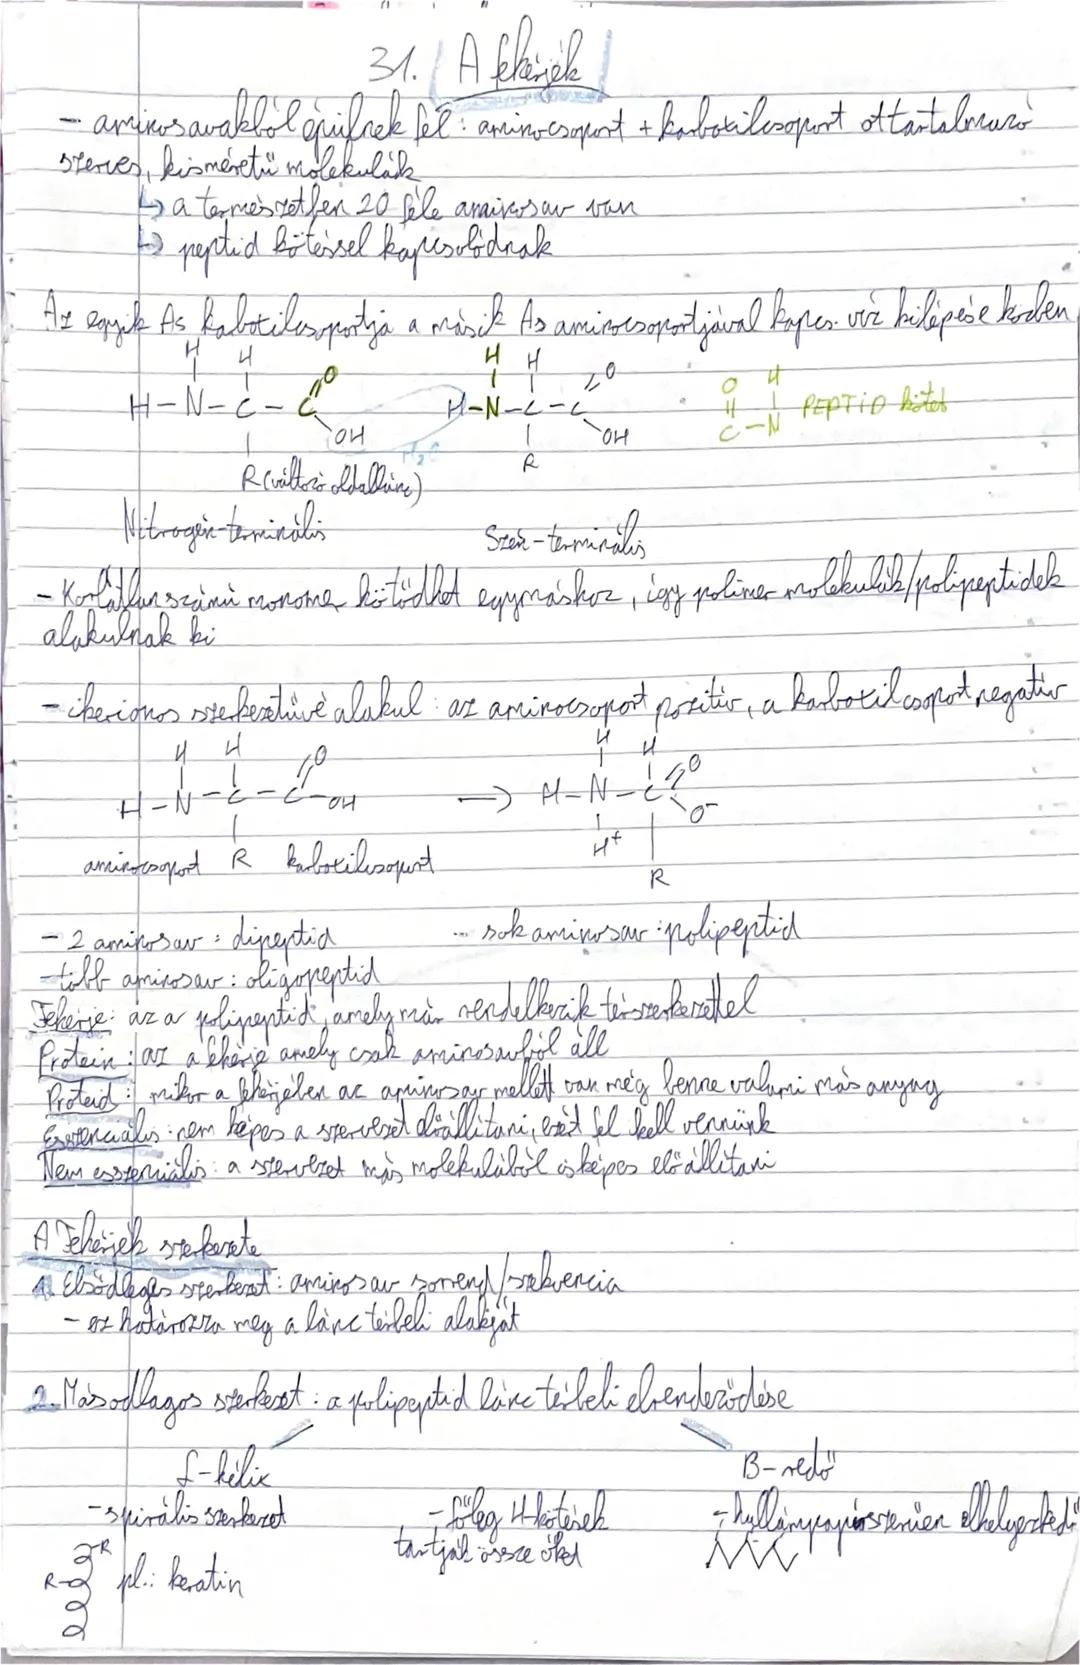 31. A fehérjék
- aminosavakból épülnek fel: aminocsoport + karboxilcsoport ot tartalmazó
szerves, kisméretű molekulák
↳ a természetben 20 féle aminosav van
↳ peptid kötéssel kapcsolódnak
Az egyik As kaboxilcsoportja a másik As aminocsoportjával kapcs. víz kilépése közben
H H O H H O
H-N-C-C OH H-N-C-C OH
H₂O
R (változó oldallánc) R
O H
C-N PEPTID kötés
Nitrogén-terminális Szén-terminális
- Korlátlan számú monomer kötődhet egymáshoz, így polimer molekulák/polipeptidek
alakulnak ki
- ikerionos szerkezetűvé alakul: az aminocsoport pozitív, a karboxilcsoport negatív
H H O H H O
H-N-C-C-OH → H-N-C O⁻
H⁺
aminocsoport R karboxilcsoport R
- 2 aminosav: dipeptid - sok aminosav: polipeptid
- több aminosav: oligopeptid
Fehérje: az a polipeptid, amely már rendelkezik térszerkezettel
Protein: az a fehérje amely csak aminosavból áll
Proteid: mikor a fehérjében az aminosav mellett van még benne valami más anyag
Esszenciális: nem képes a szervezet előállítani, ezért fel kell vennünk
Nem esszenciális: a szervezet más molekulából is képes előállítani
A Fehérjék szerkezete
1. Elsődleges szerkezet: aminosav sorrend/szekvencia
- ez határozza meg a lánc térbeli alakját
2. Másodlagos szerkezet: a polipeptid lánc térbeli elrendeződése
α-hélix B-redő
- spirális szerkezet - főleg H-kötések - hullámpapírszerűen elhelyezkedő
tartják össze őket
R
R pl.: keratin